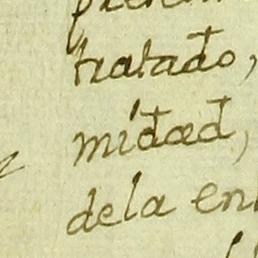 tratado,
midad,
dela en